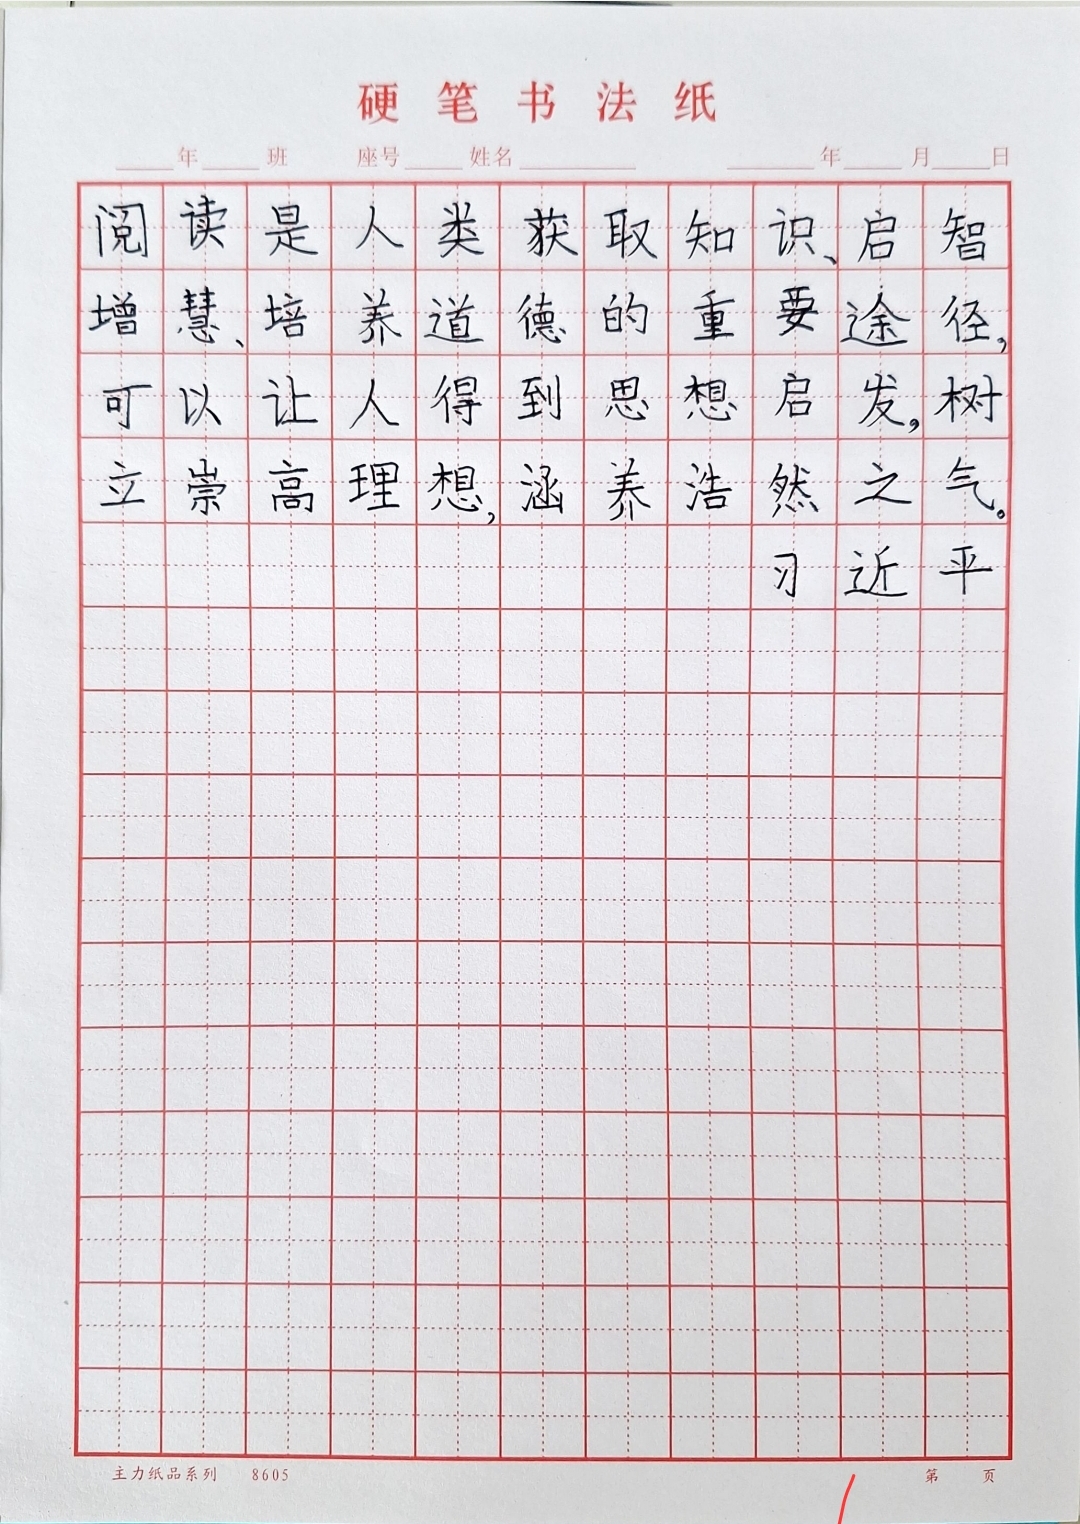 硬笔书法纸
____年____班 座号____姓名________ ________年____月____日
阅读是人类获取知识、启智
增慧、培养道德的重要途径,
可以让人得到思想启发,树
立崇高理想,涵养浩然之气。
习近平
主力纸品系列 8605 第 页